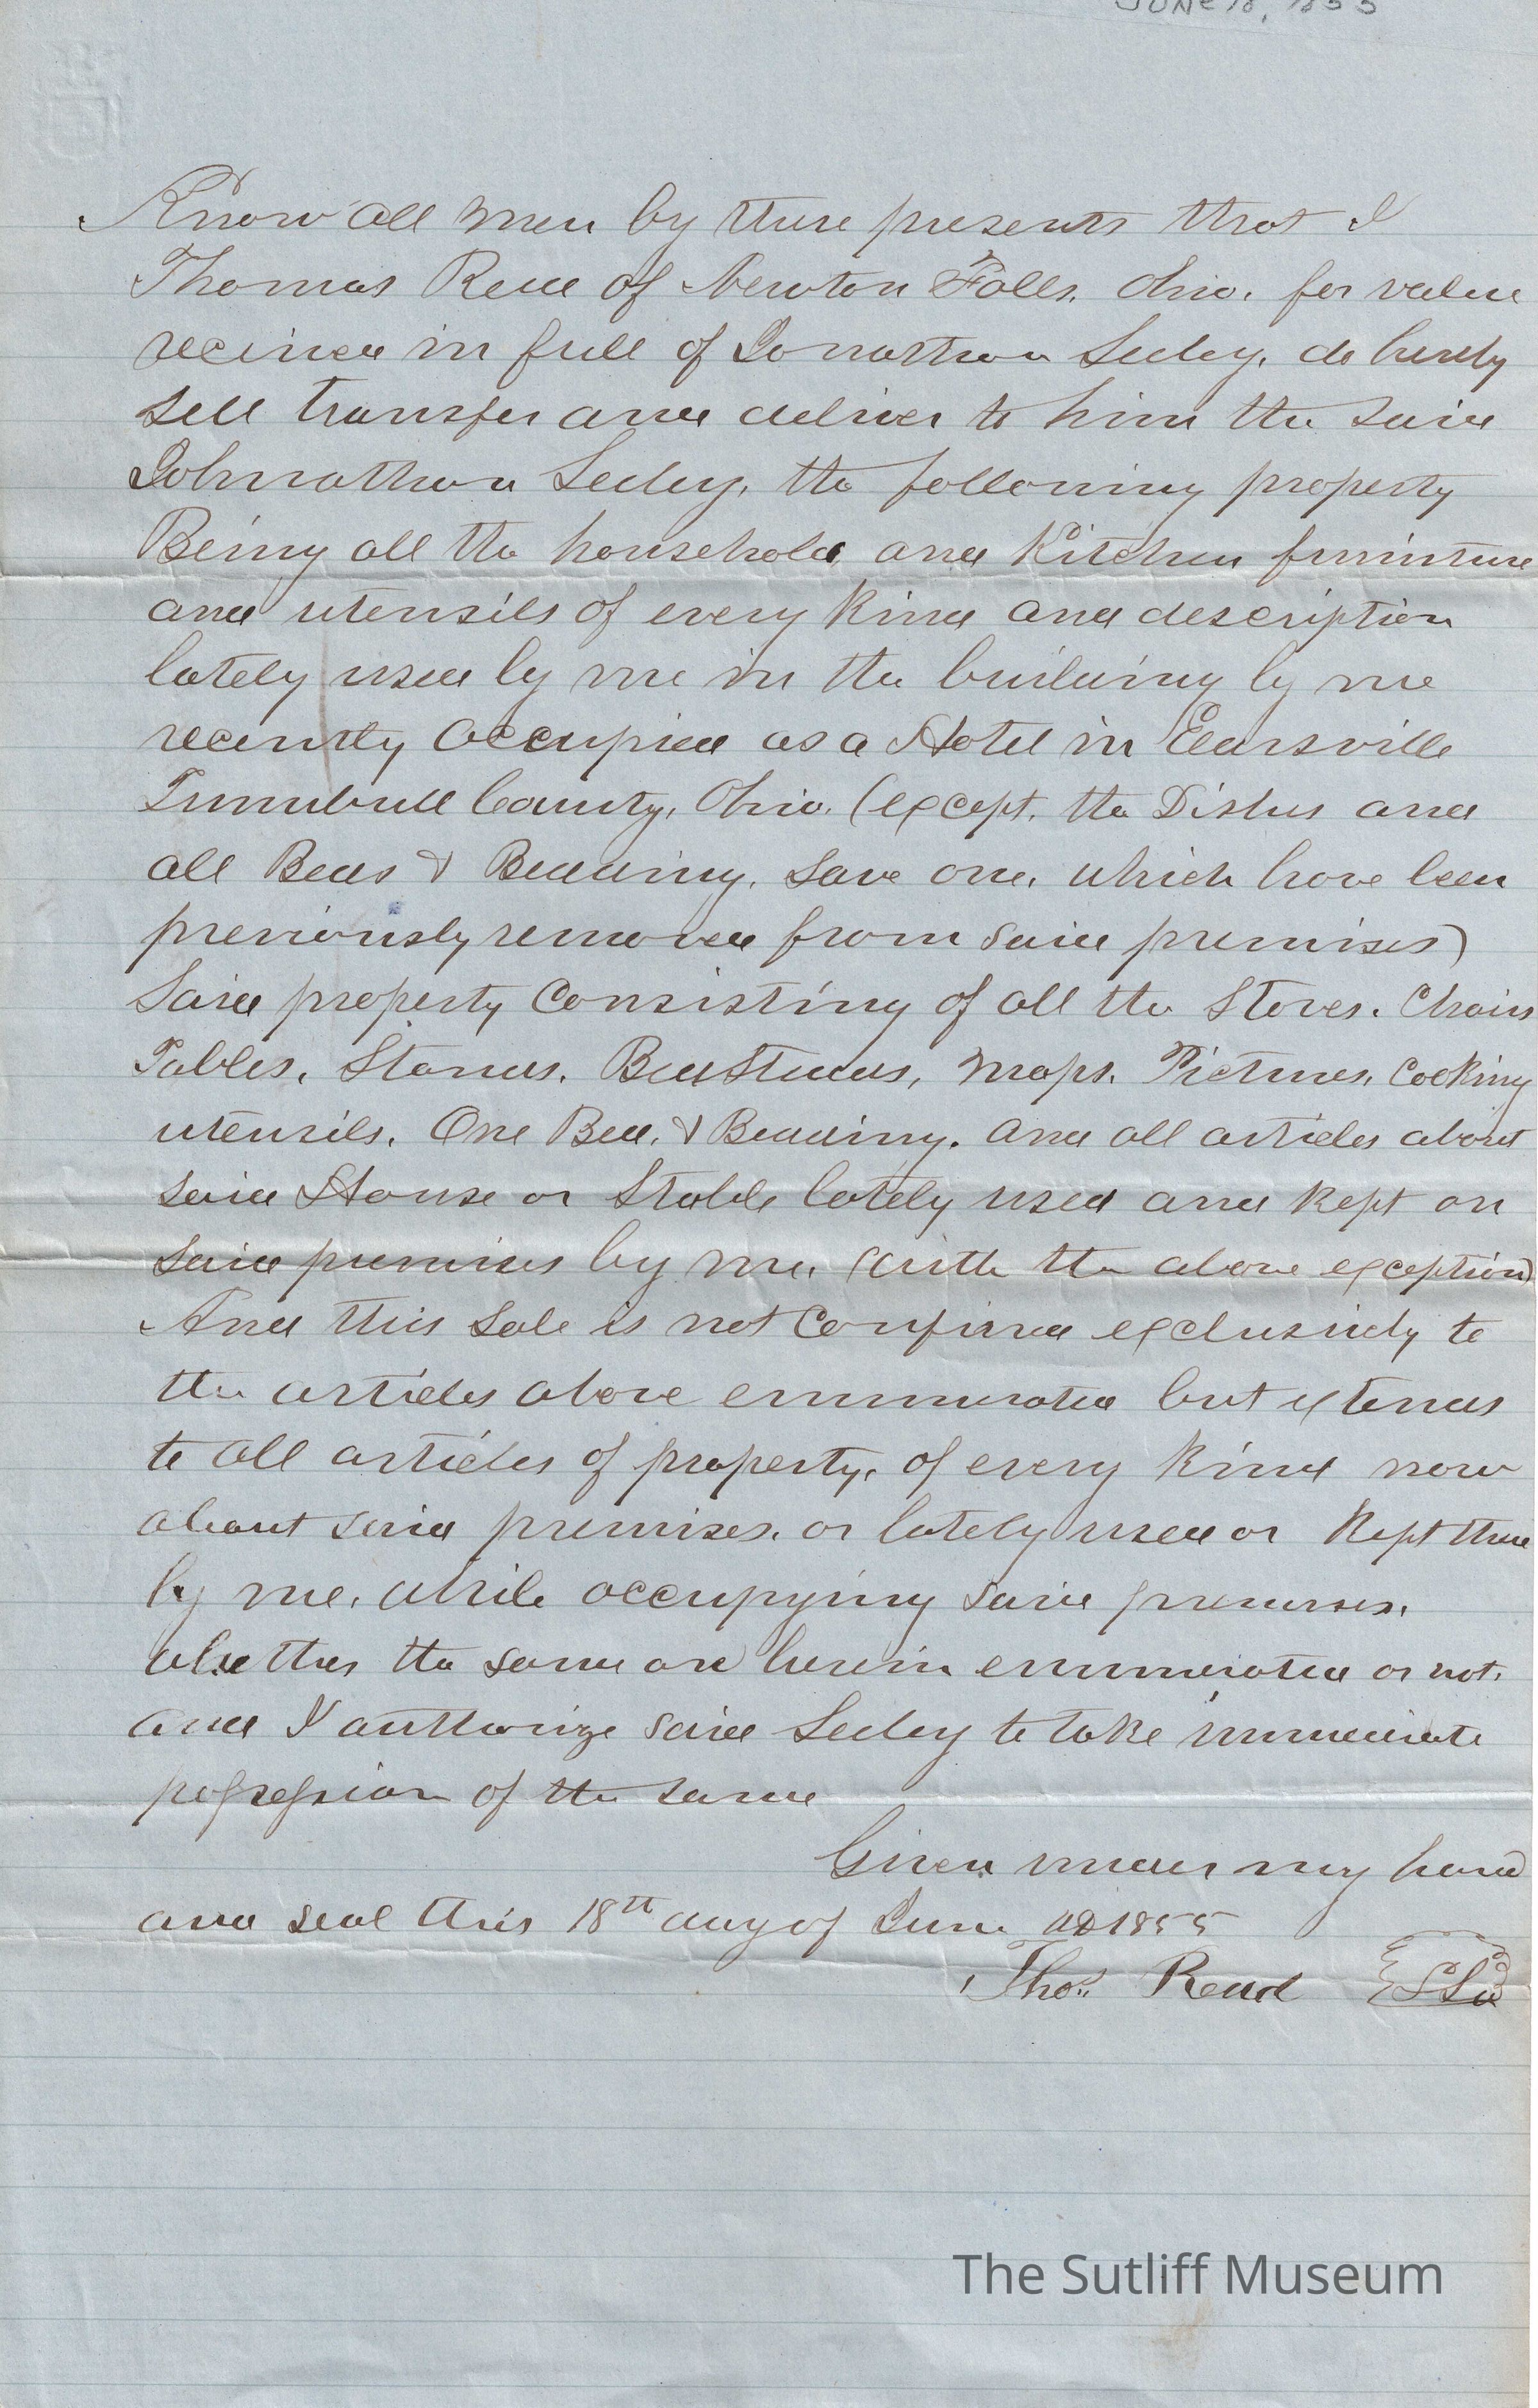 JUNE 18, 1855
Know all men by these presents that I
Thomas Read of Newton Falls, Ohio, for value
received in full of Jonathan Seeley, do hereby
sell transfer and deliver to him the said
Johnathan Seeley, the following property
Being all the household and Kitchen furniture
and utensils of every kind and description
lately used by me in the building by me
recently occupied as a Hotel in
Trumbull County, Ohio. (except, the Dishes and
all Beds & Bedding, save one, which have been
previously removed from said premises)
Said property Consisting of all the Stoves. Chairs
Tables, Stands, Bedsteads, maps, Pictures, Cooking
utensils, One Bed, & Bedding. and all articles about
said House or Stable lately used and kept on
said premises by me. (with the above exception)
And this sale is not Confined exclusively to
the articles above enumerated but extends
to all articles of property, of every kind now
about said premises, or lately used or kept there
by me, while occupying said premises,
whether the same are herein enumerated or not,
and I authorize said Seeley to take immediate
possession of the same
Given under my hand
and seal this 18th day of June AD 1855
Thos. Read
The Sutliff Museum